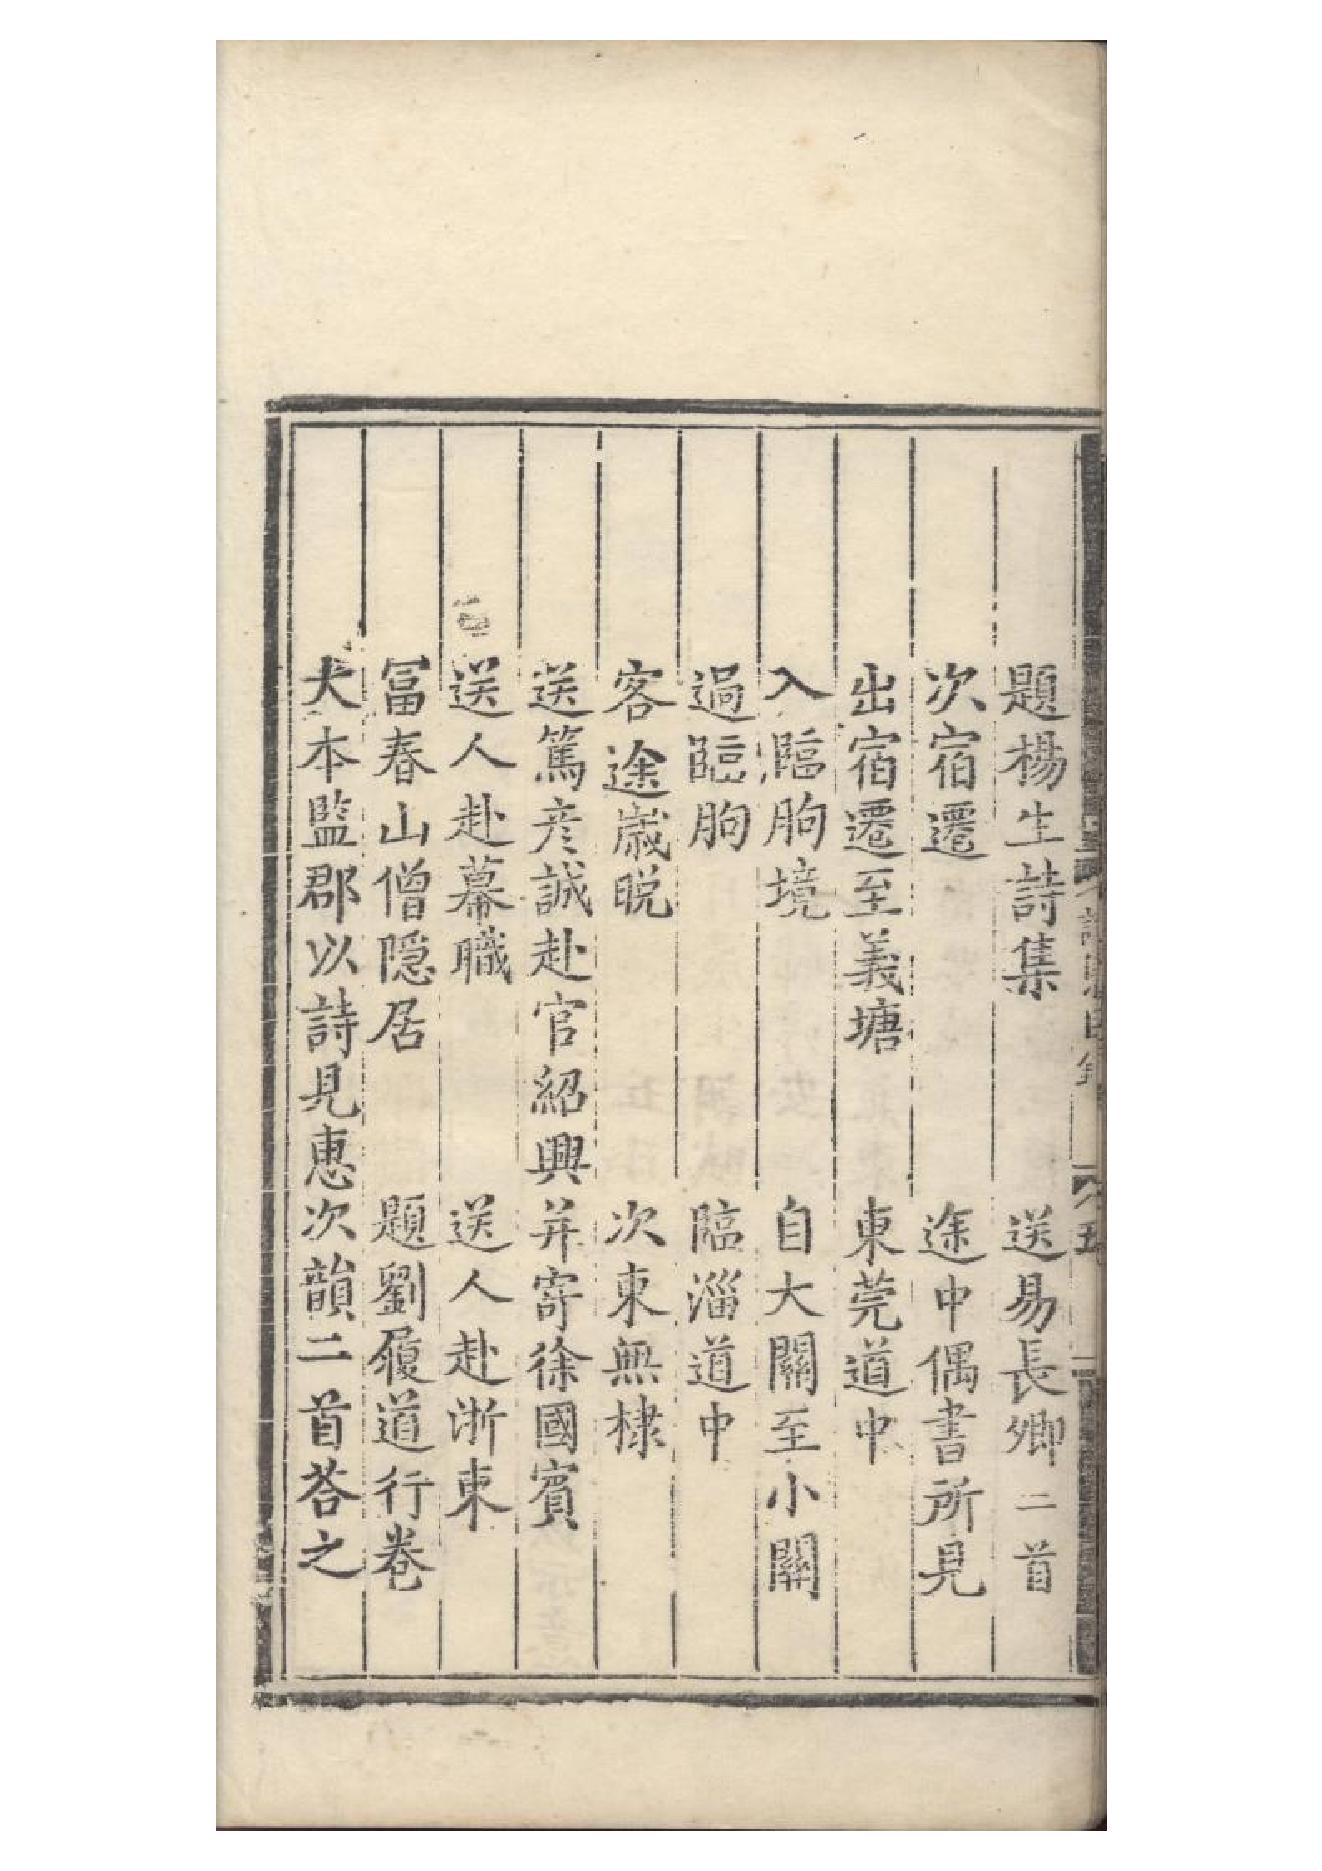 題楊生詩集 送易長卿二首
次宿遷 途中偶書所見
出宿遷至義塘 東莞道中
入臨朐境 自大關至小關
過臨朐 臨淄道中
客途歲晩 次東無棣
送篤彦誠赴官紹興并寄徐國賓
送人赴幕職 送人赴浙東
冨春山僧隠居 題劉履道行卷
大本監郡以詩見惠次韻二首荅之